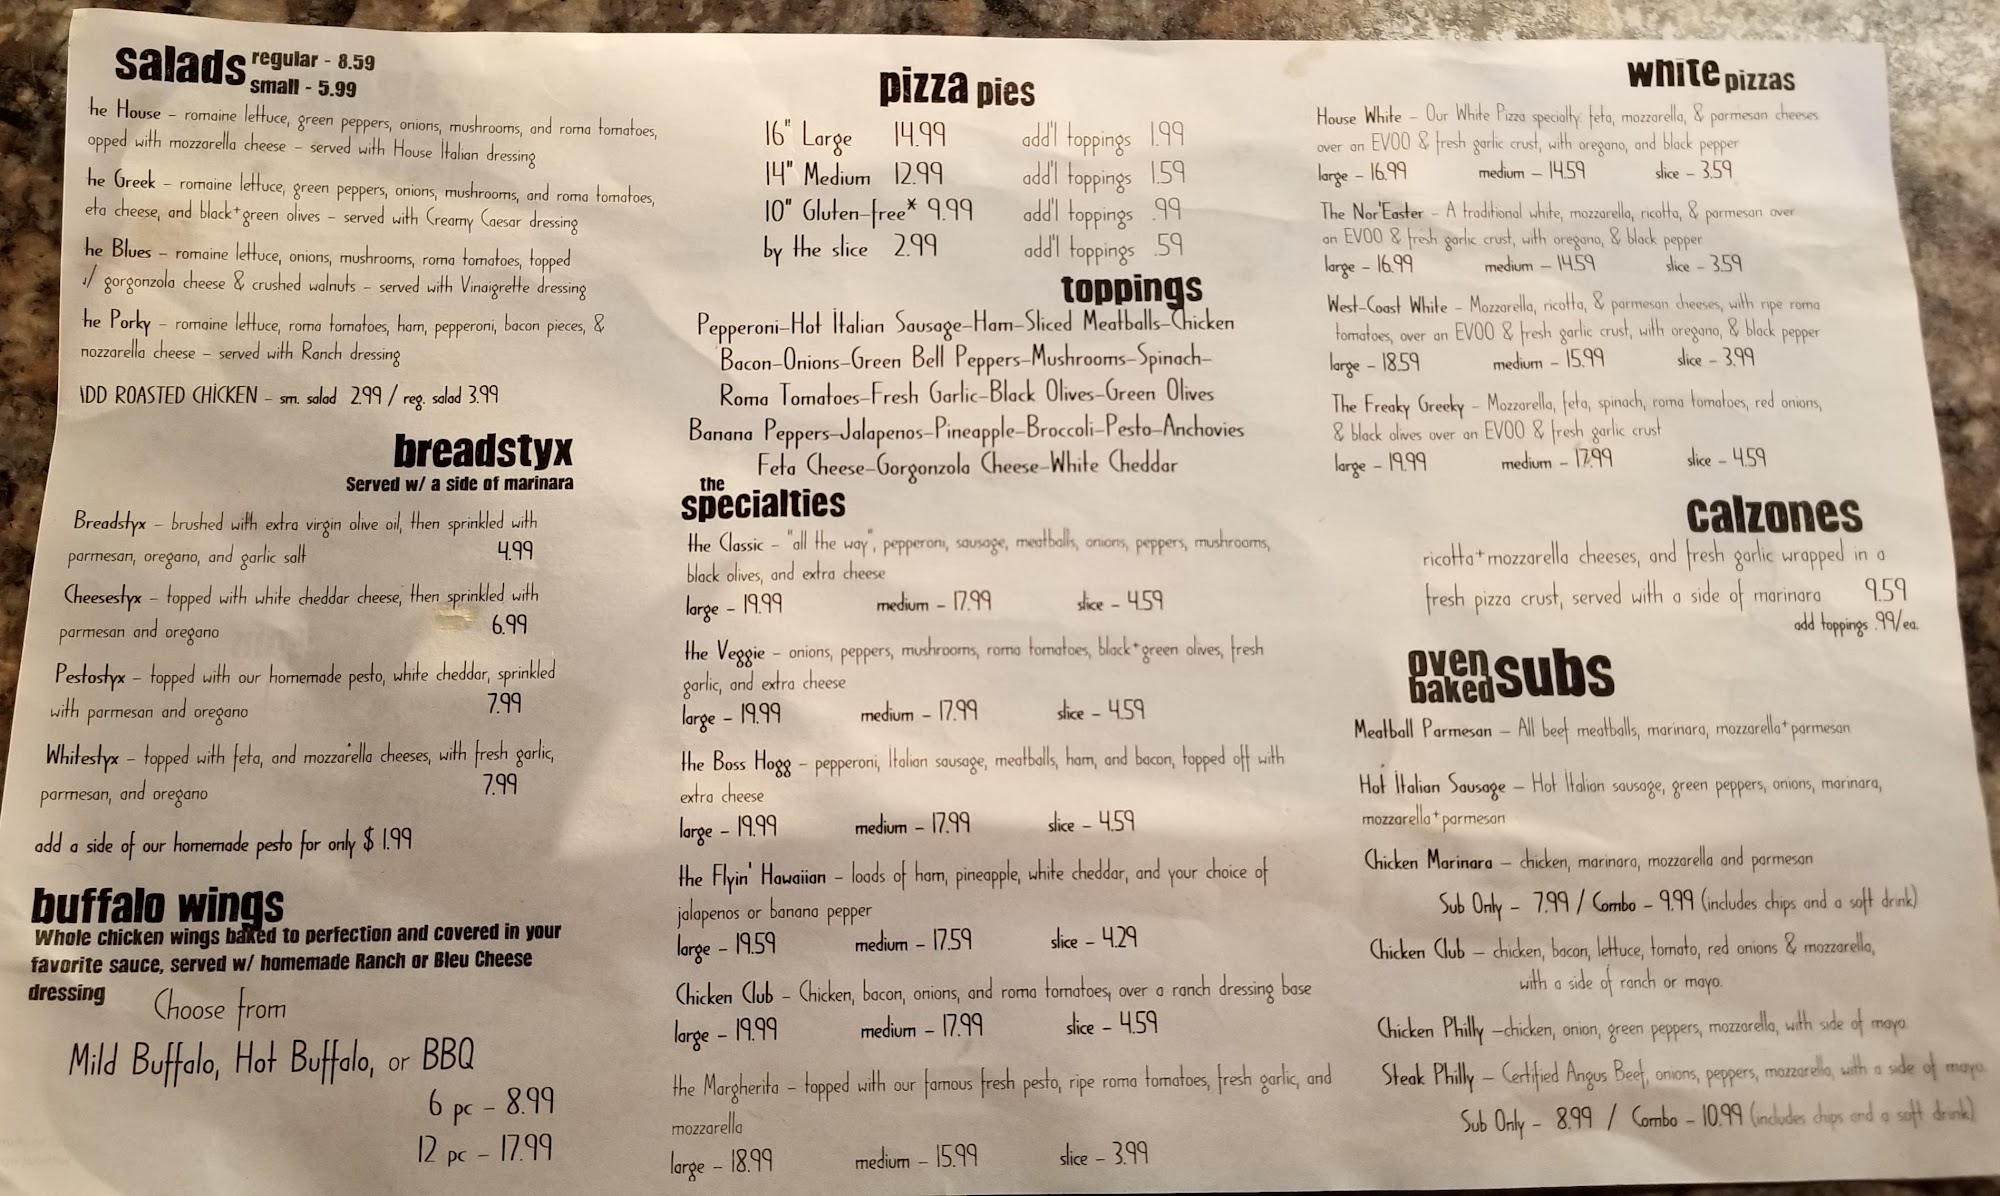 salads regular - 8.59
small - 5.99
he House - romaine lettuce, green peppers, onions, mushrooms, and roma tomatoes,
opped with mozzarella cheese - served with House Italian dressing
he Greek - romaine lettuce, green peppers, onions, mushrooms, and roma tomatoes,
eta cheese, and black+green olives - served with Creamy Caesar dressing
he Blues - romaine lettuce, onions, mushrooms, roma tomatoes, topped
/ gorgonzola cheese & crushed walnuts - served with Vinaigrette dressing
he Porky - romaine lettuce, roma tomatoes, ham, pepperoni, bacon pieces, &
mozzarella cheese - served with Ranch dressing
ADD ROASTED CHICKEN - sm. salad 2.99 / reg. salad 3.99
breadstyx
Served w/ a side of marinara
Breadstyx - brushed with extra virgin olive oil, then sprinkled with
parmesan, oregano, and garlic salt 4.99
Cheesestyx - topped with white cheddar cheese, then sprinkled with
parmesan and oregano 6.99
Pestostyx - topped with our homemade pesto, white cheddar, sprinkled
with parmesan and oregano 7.99
Whitestyx - topped with feta, and mozzarella cheeses, with fresh garlic,
parmesan, and oregano 7.99
add a side of our homemade pesto for only $ 1.99
buffalo wings
Whole chicken wings baked to perfection and covered in your
favorite sauce, served w/ homemade Ranch or Bleu Cheese
dressing
Choose from
Mild Buffalo, Hot Buffalo, or BBQ
6 pc - 8.99
12 pc - 17.99
pizza pies
16" Large 14.99 add'l toppings 1.99
14" Medium 12.99 add'l toppings 1.59
10" Gluten-free* 9.99 add'l toppings .99
by the slice 2.99 add'l toppings .59
toppings
Pepperoni-Hot Italian Sausage-Ham-Sliced Meatballs-Chicken
Bacon-Onions-Green Bell Peppers-Mushrooms-Spinach-
Roma Tomatoes-Fresh Garlic-Black Olives-Green Olives
Banana Peppers-Jalapenos-Pineapple-Broccoli-Pesto-Anchovies
Feta Cheese-Gorgonzola Cheese-White Cheddar
the
specialties
the Classic - "all the way", pepperoni, sausage, meatballs, onions, peppers, mushrooms,
black olives, and extra cheese
large - 19.99 medium - 17.99 slice - 4.59
the Veggie - onions, peppers, mushrooms, roma tomatoes, black+green olives, fresh
garlic, and extra cheese
large - 19.99 medium - 17.99 slice - 4.59
the Boss Hogg - pepperoni, Italian sausage, meatballs, ham, and bacon, topped off with
extra cheese
large - 19.99 medium - 17.99 slice - 4.59
the Flyin' Hawaiian - loads of ham, pineapple, white cheddar, and your choice of
jalapenos or banana pepper
large - 19.59 medium - 17.59 slice - 4.29
Chicken Club - Chicken, bacon, onions, and roma tomatoes, over a ranch dressing base
large - 19.99 medium - 17.99 slice - 4.59
the Margherita - topped with our famous fresh pesto, ripe roma tomatoes, fresh garlic, and
mozzarella
large - 18.99 medium - 15.99 slice - 3.99
white pizzas
House White - Our White Pizza specialty: feta, mozzarella, & parmesan cheeses
over an EVOO & fresh garlic crust, with oregano, and black pepper
large - 16.99 medium - 14.59 slice - 3.59
The Nor'Easter - A traditional white, mozzarella, ricotta, & parmesan over
an EVOO & fresh garlic crust, with oregano, & black pepper
large - 16.99 medium - 14.59 slice - 3.59
West-Coast White - Mozzarella, ricotta, & parmesan cheeses, with ripe roma
tomatoes, over an EVOO & fresh garlic crust, with oregano, & black pepper
large - 18.59 medium - 15.99 slice - 3.99
The Freaky Greeky - Mozzarella, feta, spinach, roma tomatoes, red onions,
& black olives over an EVOO & fresh garlic crust
large - 19.99 medium - 17.99 slice - 4.59
calzones
ricotta+mozzarella cheeses, and fresh garlic wrapped in a
fresh pizza crust, served with a side of marinara 9.59
add toppings .99/ea.
oven baked subs
Meatball Parmesan - All beef meatballs, marinara, mozzarella+parmesan
Hot Italian Sausage - Hot Italian sausage, green peppers, onions, marinara,
mozzarella+parmesan
Chicken Marinara - chicken, marinara, mozzarella and parmesan
Sub Only - 7.99 / Combo - 9.99 (includes chips and a soft drink)
Chicken Club - chicken, bacon, lettuce, tomato, red onions & mozzarella,
with a side of ranch or mayo.
Chicken Philly -chicken, onion, green peppers, mozzarella, with side of mayo.
Steak Philly - Certified Angus Beef, onions, peppers, mozzarella, with a side of mayo.
Sub Only - 8.99 / Combo - 10.99 (includes chips and a soft drink)